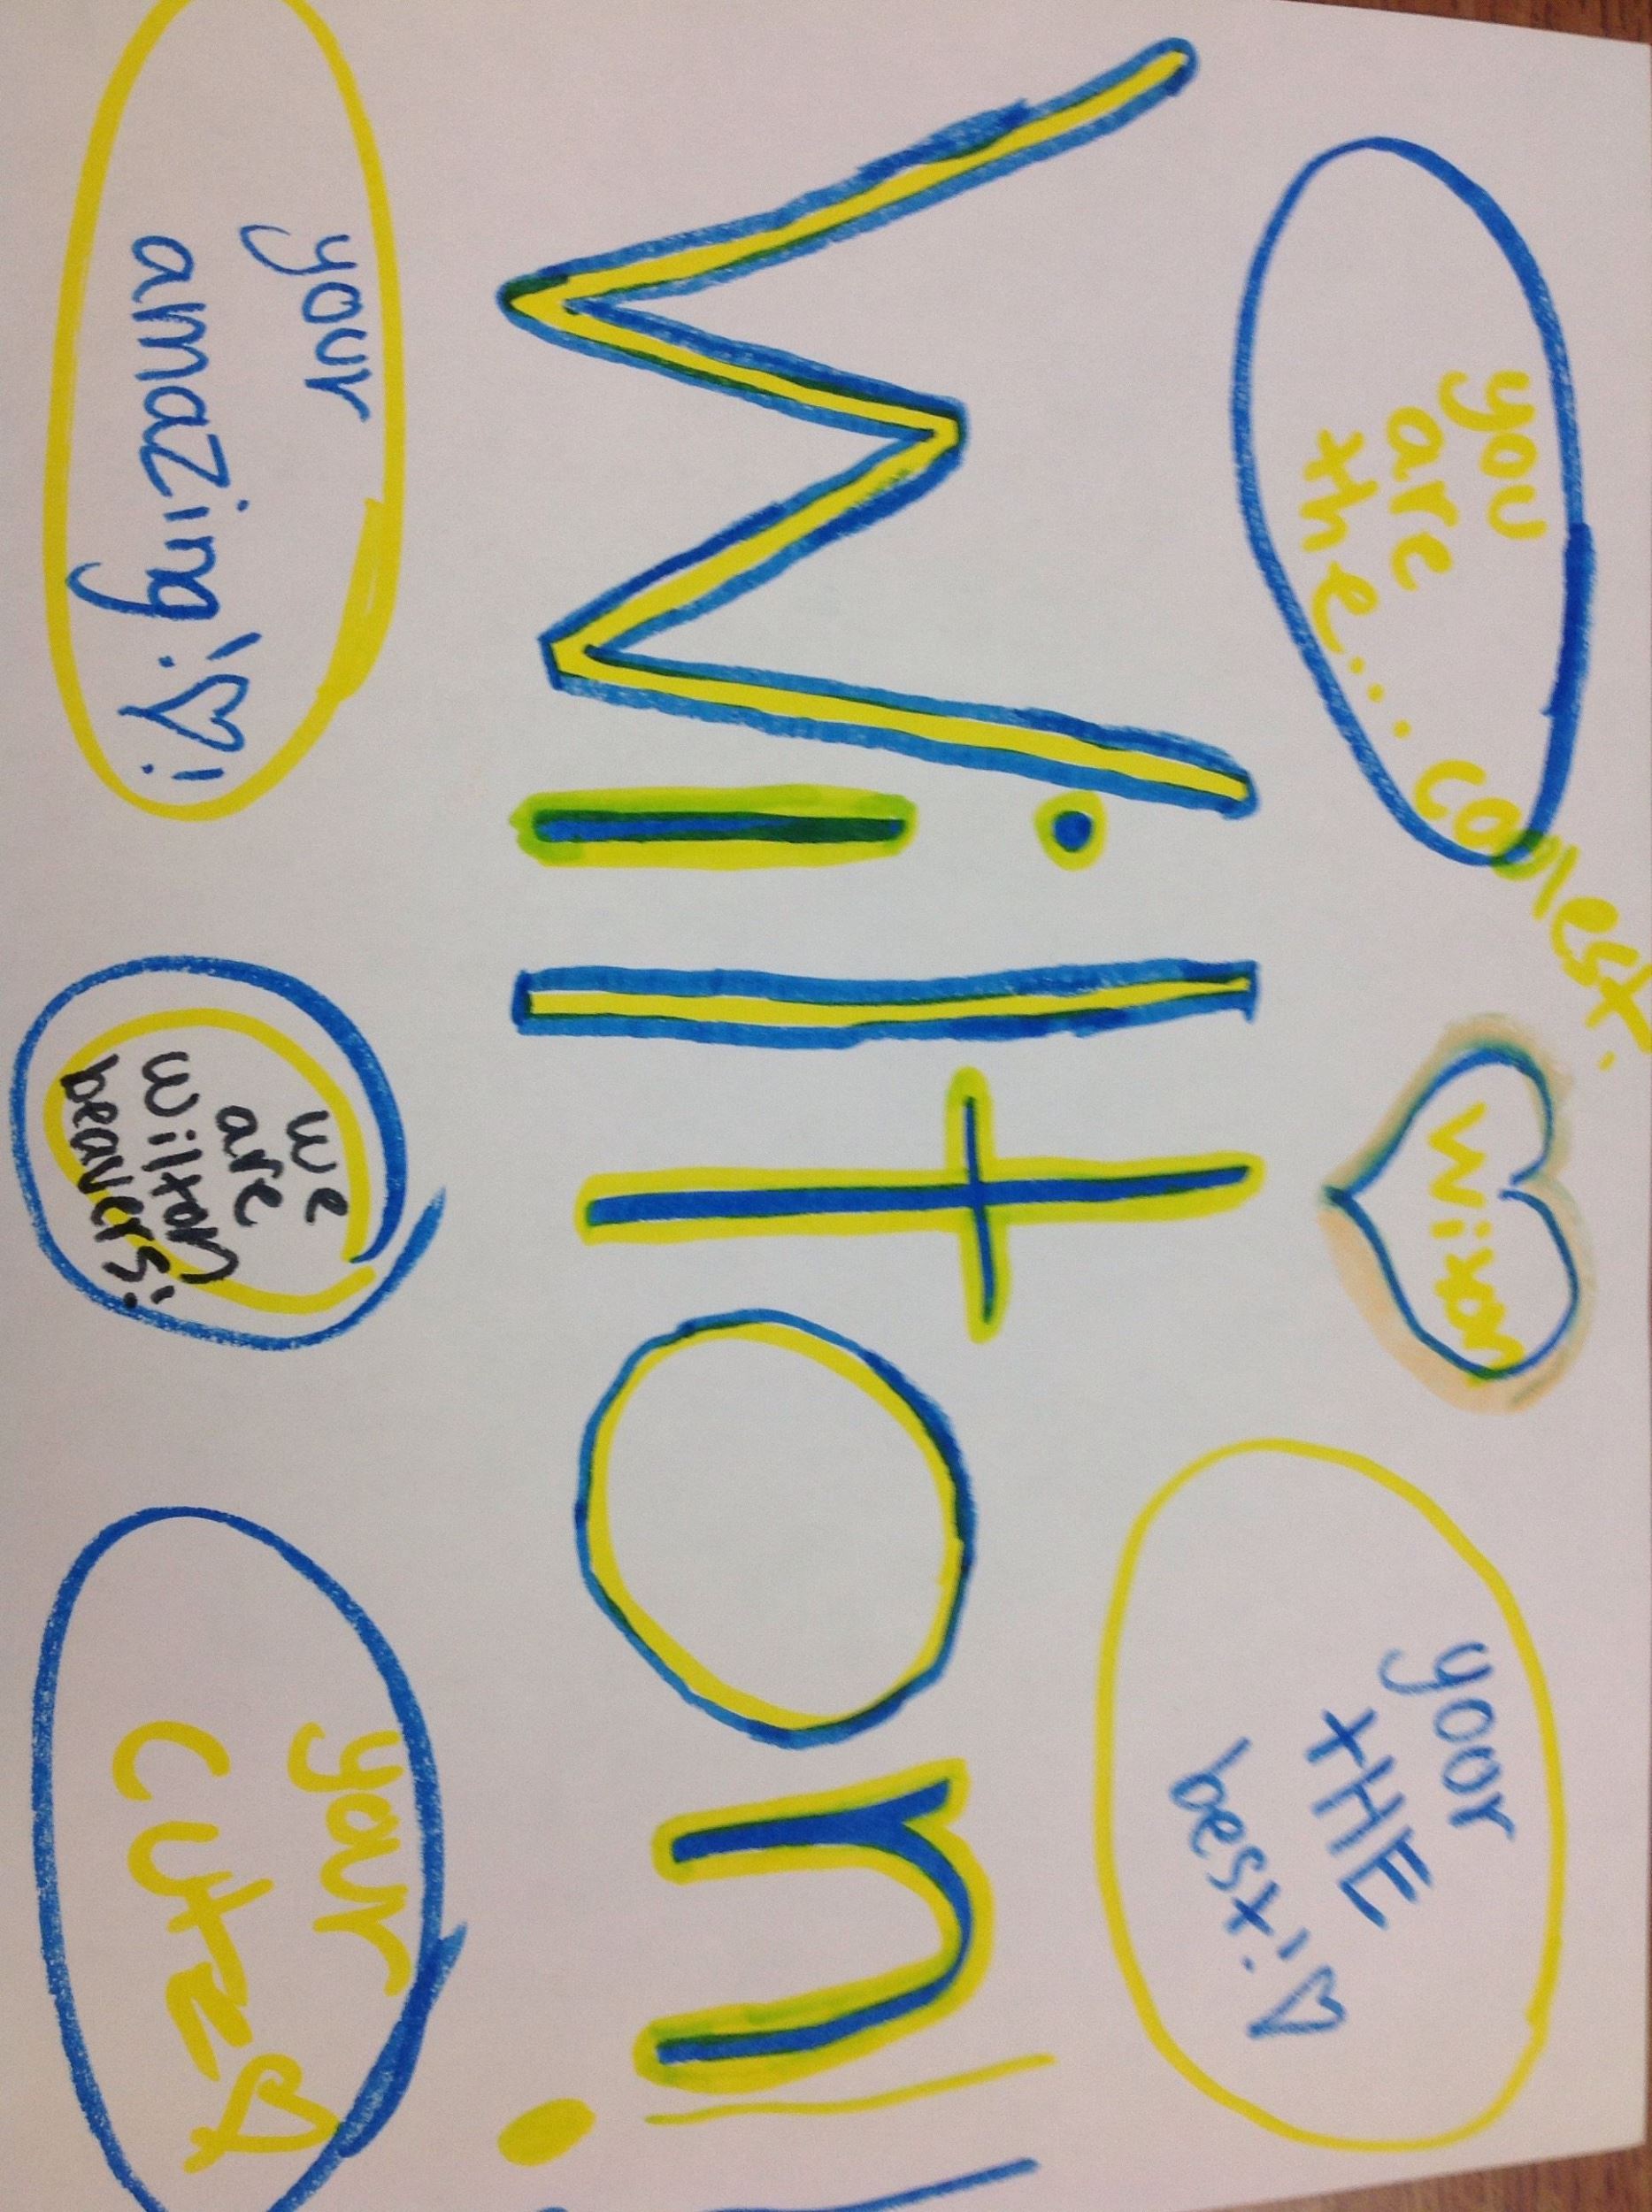 you
are
the... coolest.
Wixon
your
tHE
best! ♡
Wilton!!
your
amazing! ♡!
we
are
wilton
beavers!
your
CUtE ♡